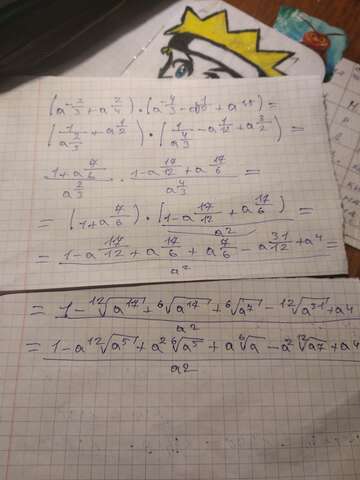 (a^{-\frac{2}{3}}+a^{\frac{2}{4}})·(a^{-\frac{4}{3}}-a^{\frac{1}{}}+a^{})=
(\frac{1}{a^{\frac{2}{3}}}+a^{\frac{1}{2}})·(\frac{1}{a^{\frac{4}{3}}}-a^{\frac{1}{12}}+a^{\frac{3}{2}})=
\frac{1+a^{\frac{7}{6}}}{a^{\frac{2}{3}}}·\frac{1-a^{\frac{17}{12}}+a^{\frac{17}{6}}}{a^{\frac{4}{3}}}=
=\frac{(1+a^{\frac{7}{6}})·(1-a^{\frac{17}{12}}+a^{\frac{17}{6}})}{a^2}=
=\frac{1-a^{\frac{17}{12}}+a^{\frac{17}{6}}+a^{\frac{7}{6}}-a^{\frac{31}{12}}+a^4}{a^2}=
=\frac{1-\sqrt[12]{a^{17}}+\sqrt[6]{a^{17}}+\sqrt[6]{a^7}-\sqrt[12]{a^{31}}+a^4}{a^2}
=\frac{1-a\sqrt[12]{a^5}+a^2\sqrt[6]{a^5}+a\sqrt[6]{a}-a^2\sqrt[12]{a^7}+a^4}{a^2}